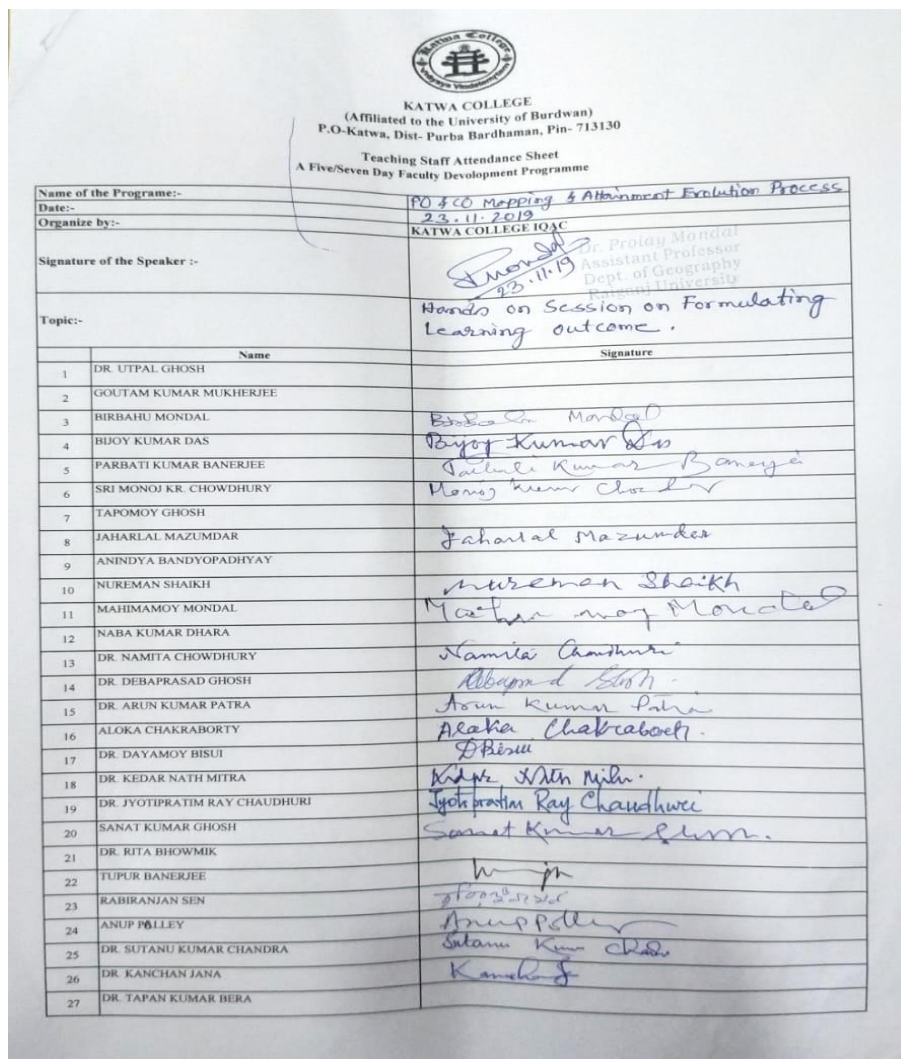 Katwa College
Vidyaya Vindatemrytam
KATWA COLLEGE
(Affiliated to the University of Burdwan)
P.O-Katwa, Dist- Purba Bardhaman, Pin- 713130
Teaching Staff Attendance Sheet
A Five/Seven Day Faculty Devolopment Programme
Name of the Programe:- PO & CO Mapping & Attainment Evolution Process
Date:- 23.11.2019
Organize by:- KATWA COLLEGE IQAC
Signature of the Speaker :- PMondal
23.11.19
Dr. Prolay Mondal
Assistant Professor
Dept. of Geography
Raiganj University
Topic:- Hands on Session on Formulating
Learning outcome.
Name Signature
1 DR. UTPAL GHOSH
2 GOUTAM KUMAR MUKHERJEE
3 BIRBAHU MONDAL Birbahu Mondal
4 BIJOY KUMAR DAS Bijoy Kumar Das
5 PARBATI KUMAR BANERJEE Kumar Banerjee
6 SRI MONOJ KR. CHOWDHURY Monoj Kumar
7 TAPOMOY GHOSH
8 JAHARLAL MAZUMDAR Jaharlal Mazumder
9 ANINDYA BANDYOPADHYAY
10 NUREMAN SHAIKH Nureman Shaikh
11 MAHIMAMOY MONDAL Mahimamoy Mondal
12 NABA KUMAR DHARA
13 DR. NAMITA CHOWDHURY Namita Chowdhuri
14 DR. DEBAPRASAD GHOSH
15 DR. ARUN KUMAR PATRA Arun Kumar Patra
16 ALOKA CHAKRABORTY Aloka Chakraborty.
17 DR. DAYAMOY BISUI DBisui
18 DR. KEDAR NATH MITRA Nath
19 DR. JYOTIPRATIM RAY CHAUDHURI Jyotipratim Ray Chaudhuri
20 SANAT KUMAR GHOSH Sanat Kumar Ghosh.
21 DR. RITA BHOWMIK
22 TUPUR BANERJEE
23 RABIRANJAN SEN
24 ANUP PALLEY Anup Palley
25 DR. SUTANU KUMAR CHANDRA Sutanu Kumar
26 DR. KANCHAN JANA Kanchan
27 DR. TAPAN KUMAR BERA